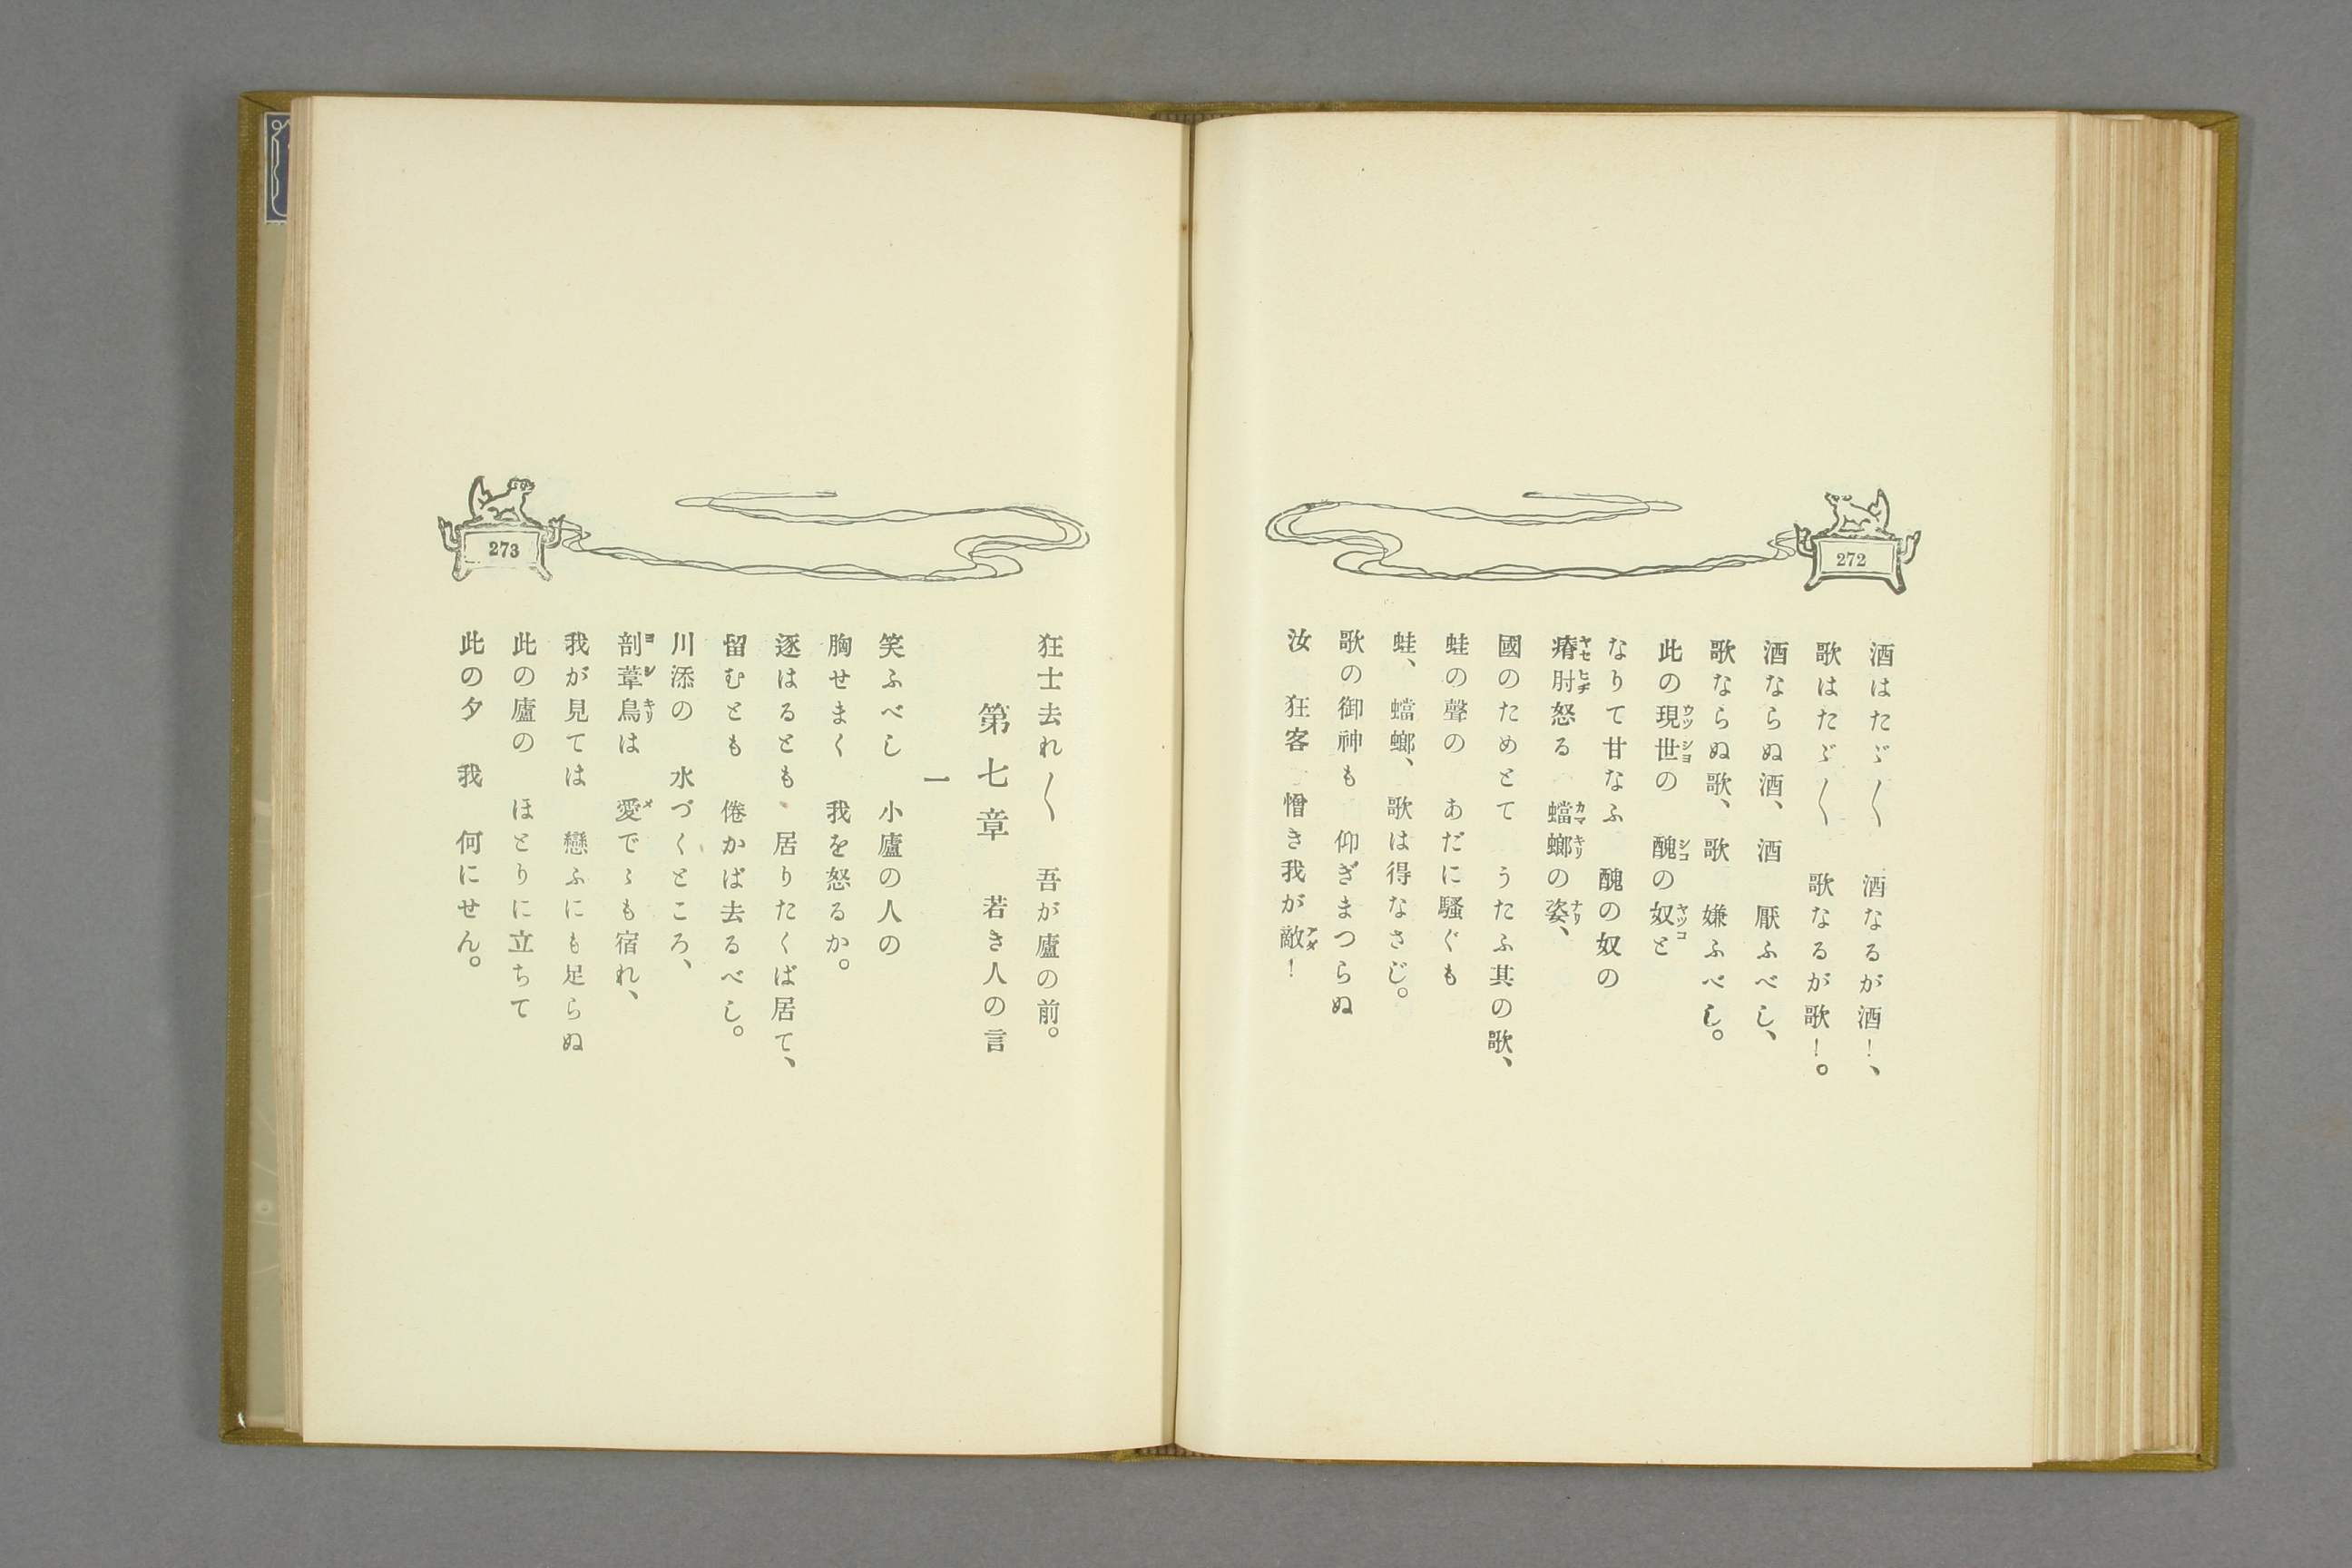 272
酒はたゞ〳〵　酒なるが酒！、
歌はたゞ〳〵　歌なるが歌！。
酒ならぬ酒、酒　厭ふべし、
歌ならぬ歌、歌　嫌ふべし。
此の現世の　醜の奴と
なりて甘なふ　醜の奴の
瘠肘怒る　蟷螂の姿、
國のためとて　うたふ其の歌、
蛙の聲の　あだに騷ぐも
蛙、蟷螂、歌は得なさじ。
歌の御神も　仰ぎまつらぬ
汝　狂客　憎き我が敵！
273
狂士去れ〳〵　吾が廬の前。
第七章　若き人の言
一
笑ふべし　小廬の人の
胸せまく　我を怒るか。
逐はるとも、居りたくば居て、
留むとも　倦かば去るべし。
川添の　水づくところ、
剖葦鳥は　愛でゝも宿れ、
我が見ては　戀ふにも足らぬ
此の廬の　ほとりに立ちて
此の夕　我　何にせん。